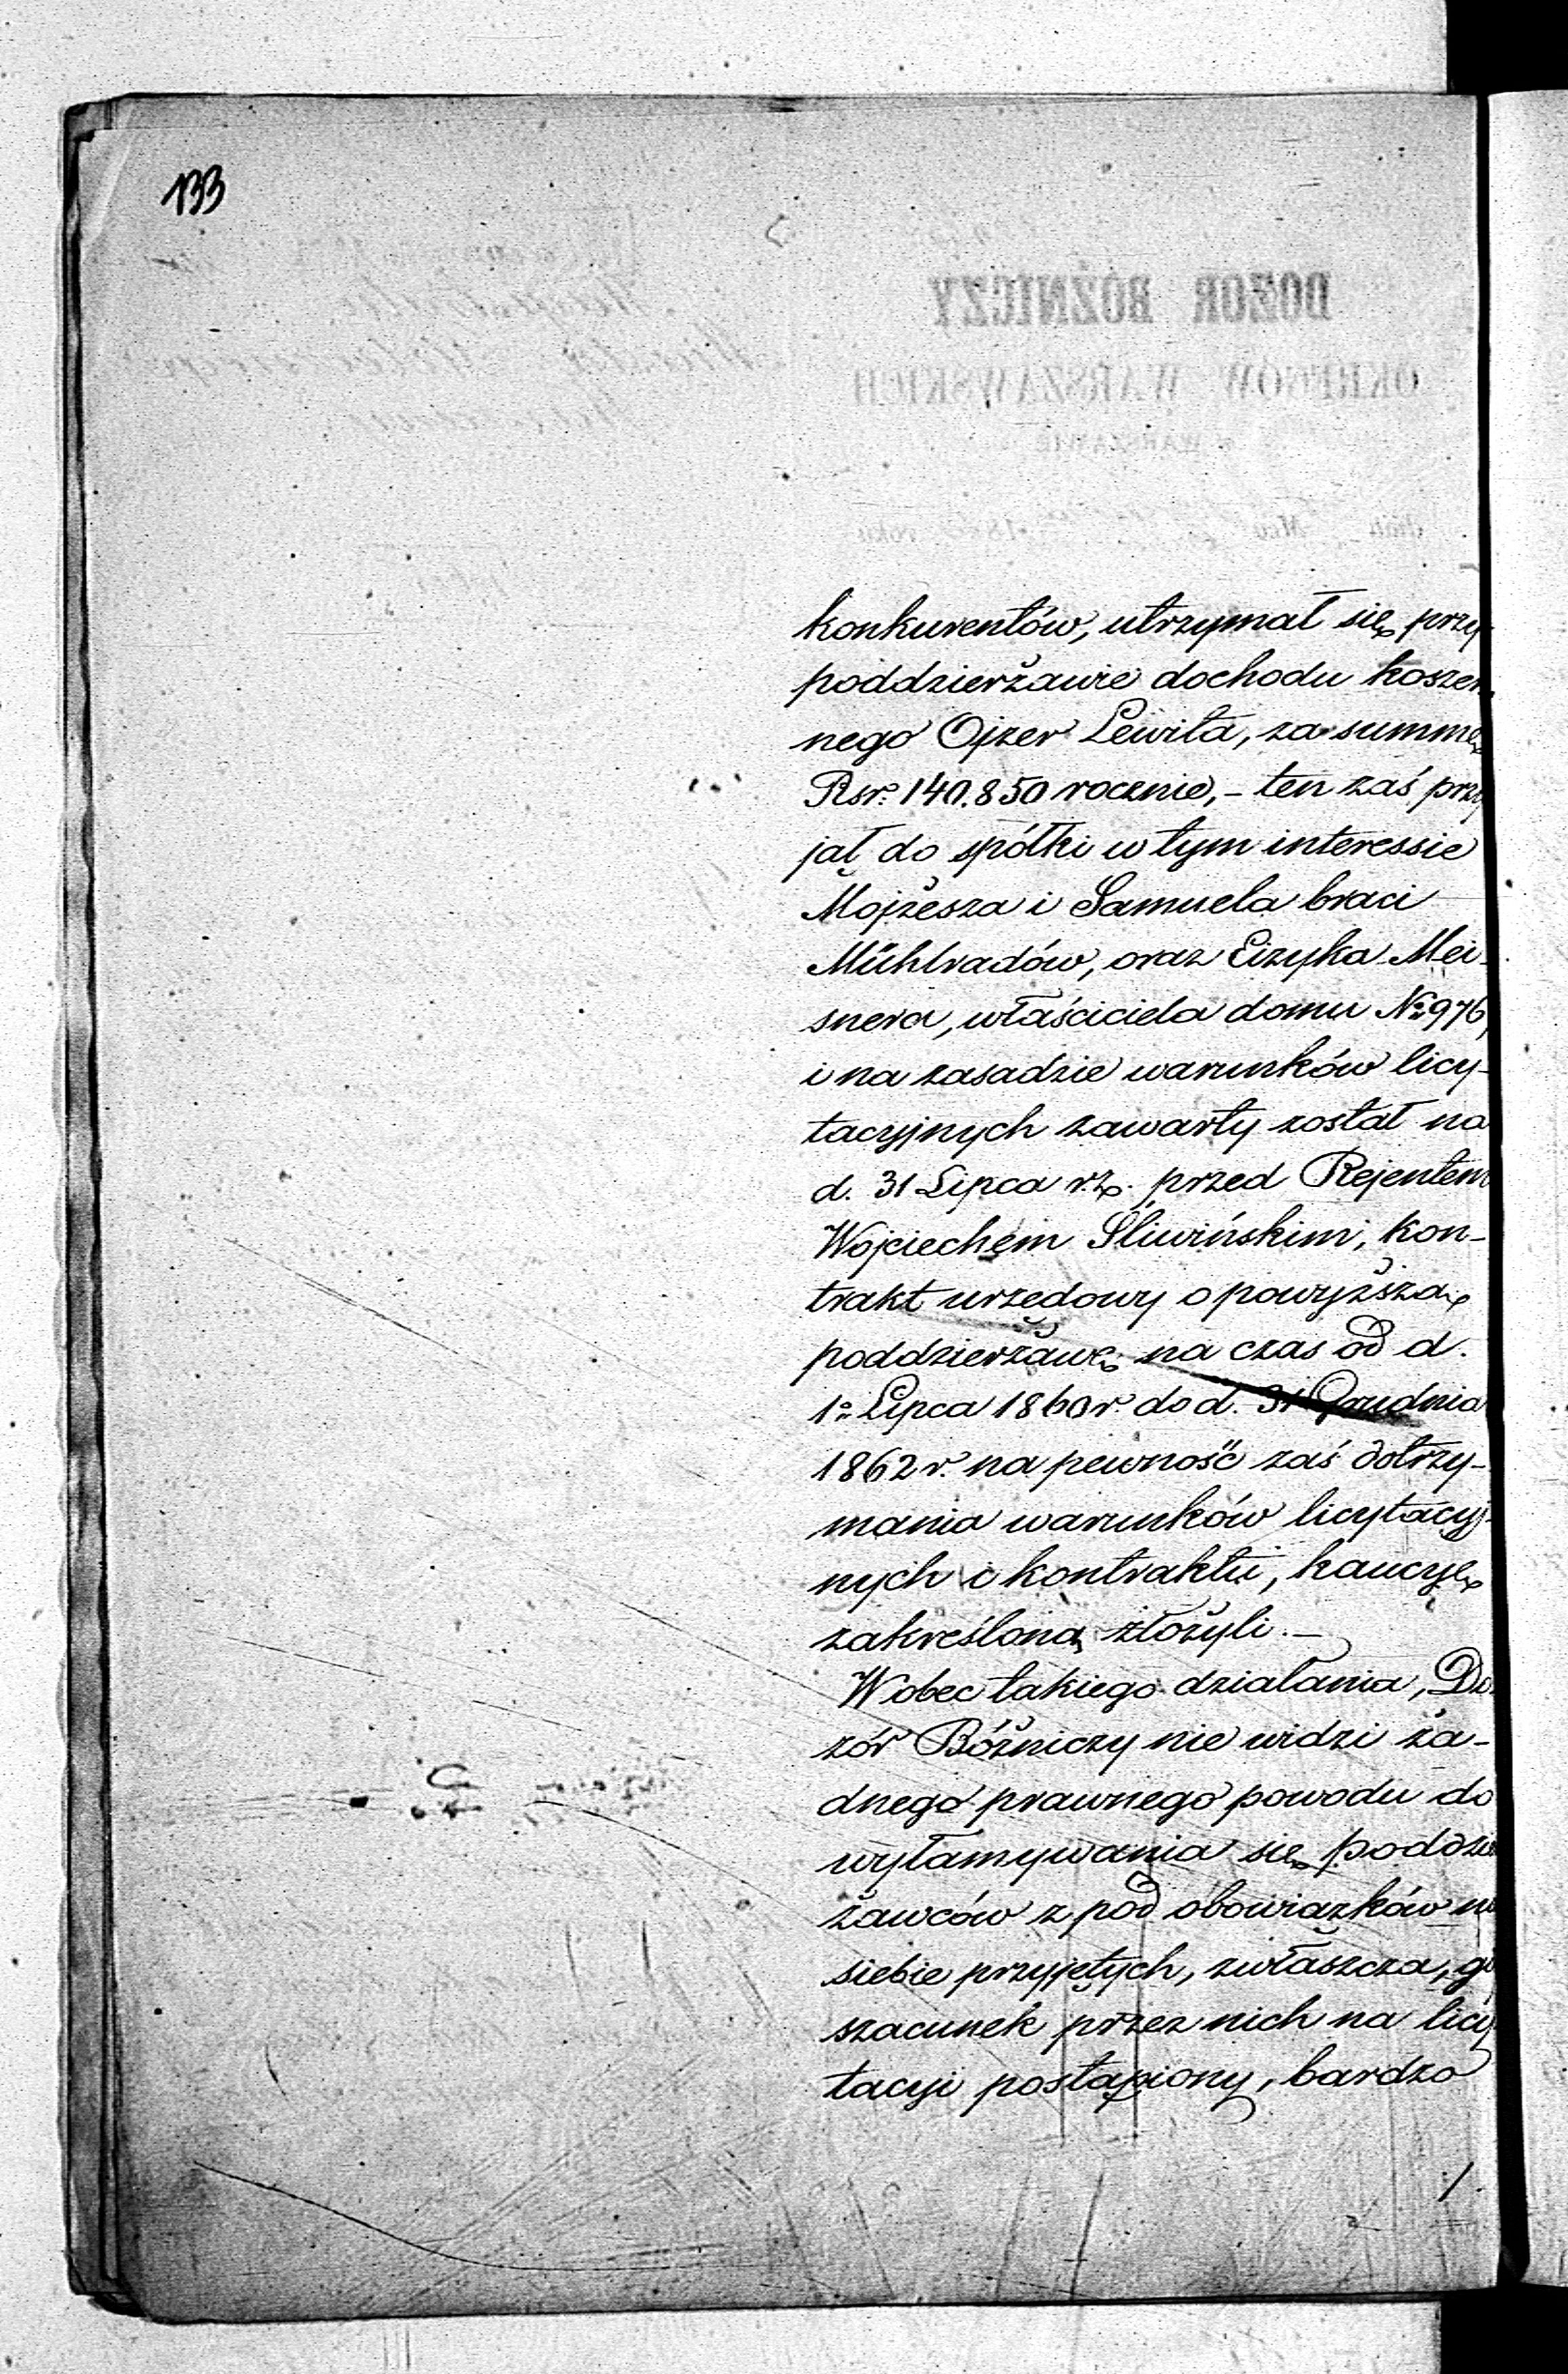 133
konkurentów, utrzymał się przy
poddzierżawie dochodu koszer
nego Ojzer Lewita, za summę
Rsr. 140.850 rocznie, – ten zaś przy
jął do spółki w tym interessie
Mojżesza i Samuela braci
Mühlradów, oraz Eizyka Mei-
snera, właściciela domu № 976,
i na zasadzie warunków licy-
tacyjnych zawarty został na
d. 31 Lipca r.z. przed Rejentem
Wojciechem Śliwińskim, kon-
trakt urzędowy o powyższą
poddzierżawę na czas od d.
1º Lipca 1860 r. do d. 31 Grudnia
1862 r. na pewność zaś dotrzy-
mania warunków licytacyj-
nych i kontraktu, kaucyę
zakreśloną złożyli. –
Wobec takiego działania, Do
zór Bóżniczy nie widzi ża-
dnego prawnego powodu do
wyłamywania się poddzie
żawców z pod obowiązków na
siebie przyjętych, zwłaszcza, gdy
szacunek przez nich na licy
tacyi postąpiony, bardzo